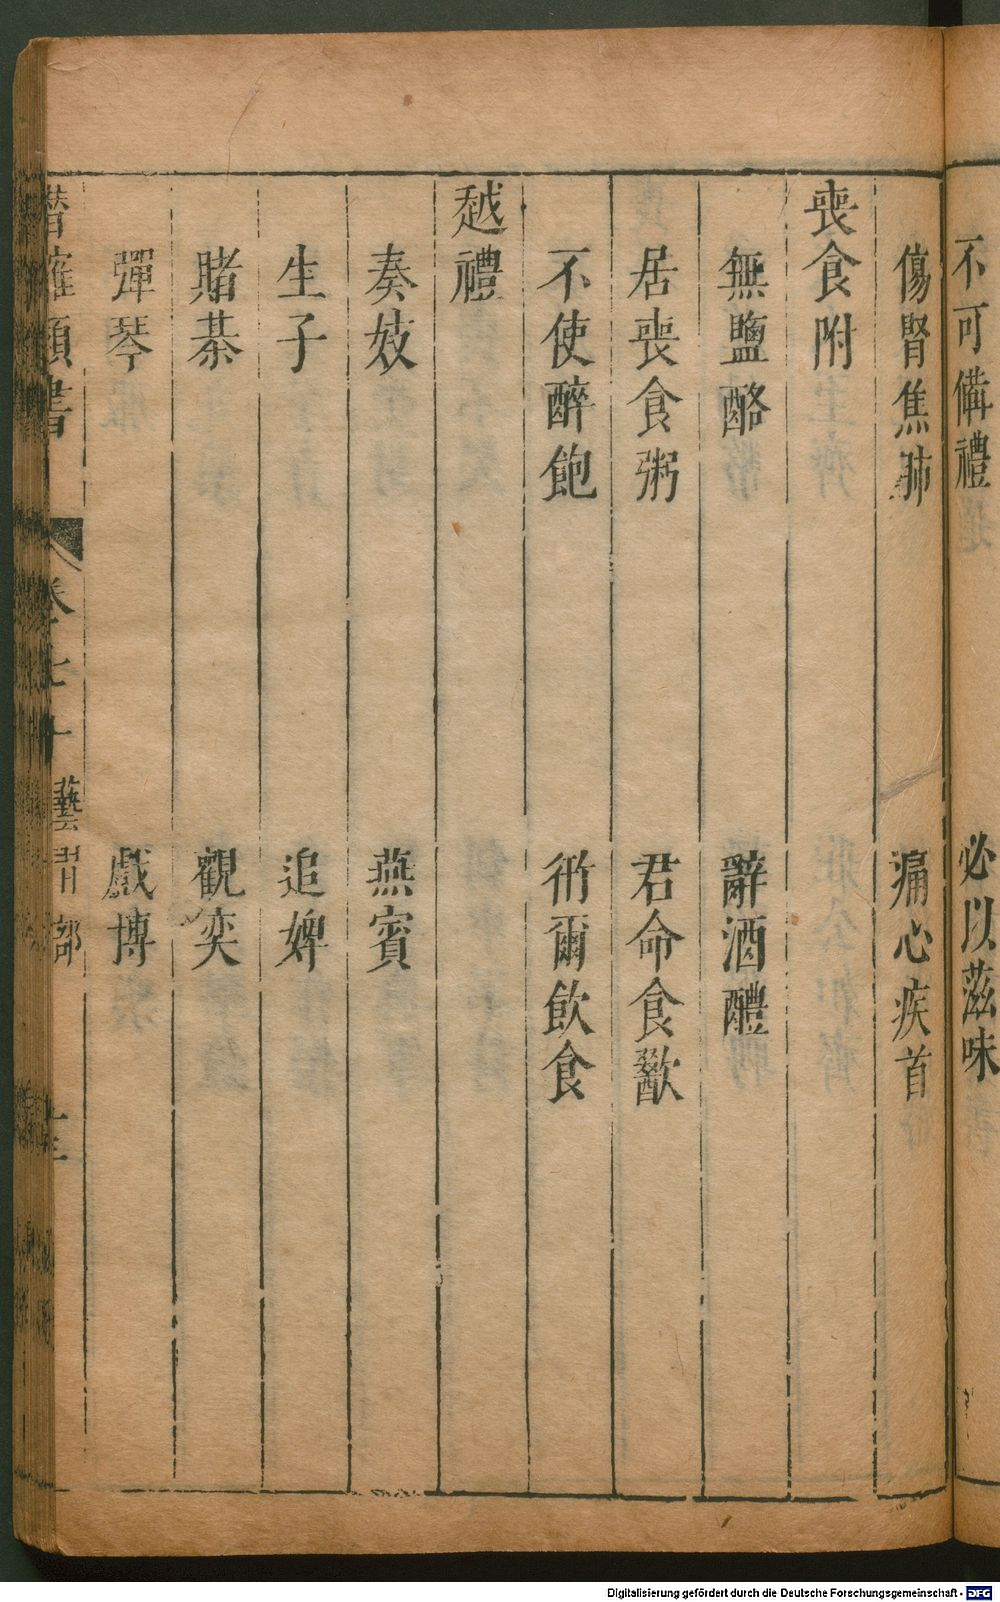 不可備禮 必以滋味
傷腎焦肺 痛心疾首
喪食附
無鹽酪 辭酒醴
居喪食粥 君命食歠
不使醉飽 衎爾飲食
越禮
奏妓 燕賓
生子 追婢
賭棊 觀奕
彈琴 戲博
潛確類書 卷七十 藝習部 十三
Digitalisierung gefördert durch die Deutsche Forschungsgemeinschaft - DFG